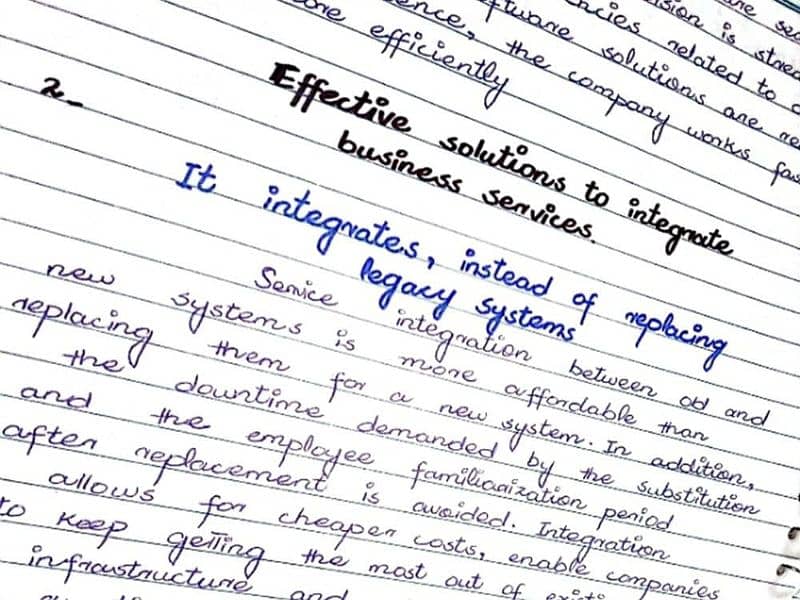 is stored
related to
solutions are
the company works
efficiently
2_
Effective solutions to integrate
business services.
It integrates, instead of replacing
legacy systems
Service integration between old and
new systems is more affordable than
replacing them for a new system. In addition,
the downtime demanded by the substitution
and the employee familiarization period
after replacement is avoided. Integration
allows for cheaper costs, enable companies
to keep getting the most out of
infraustructure and